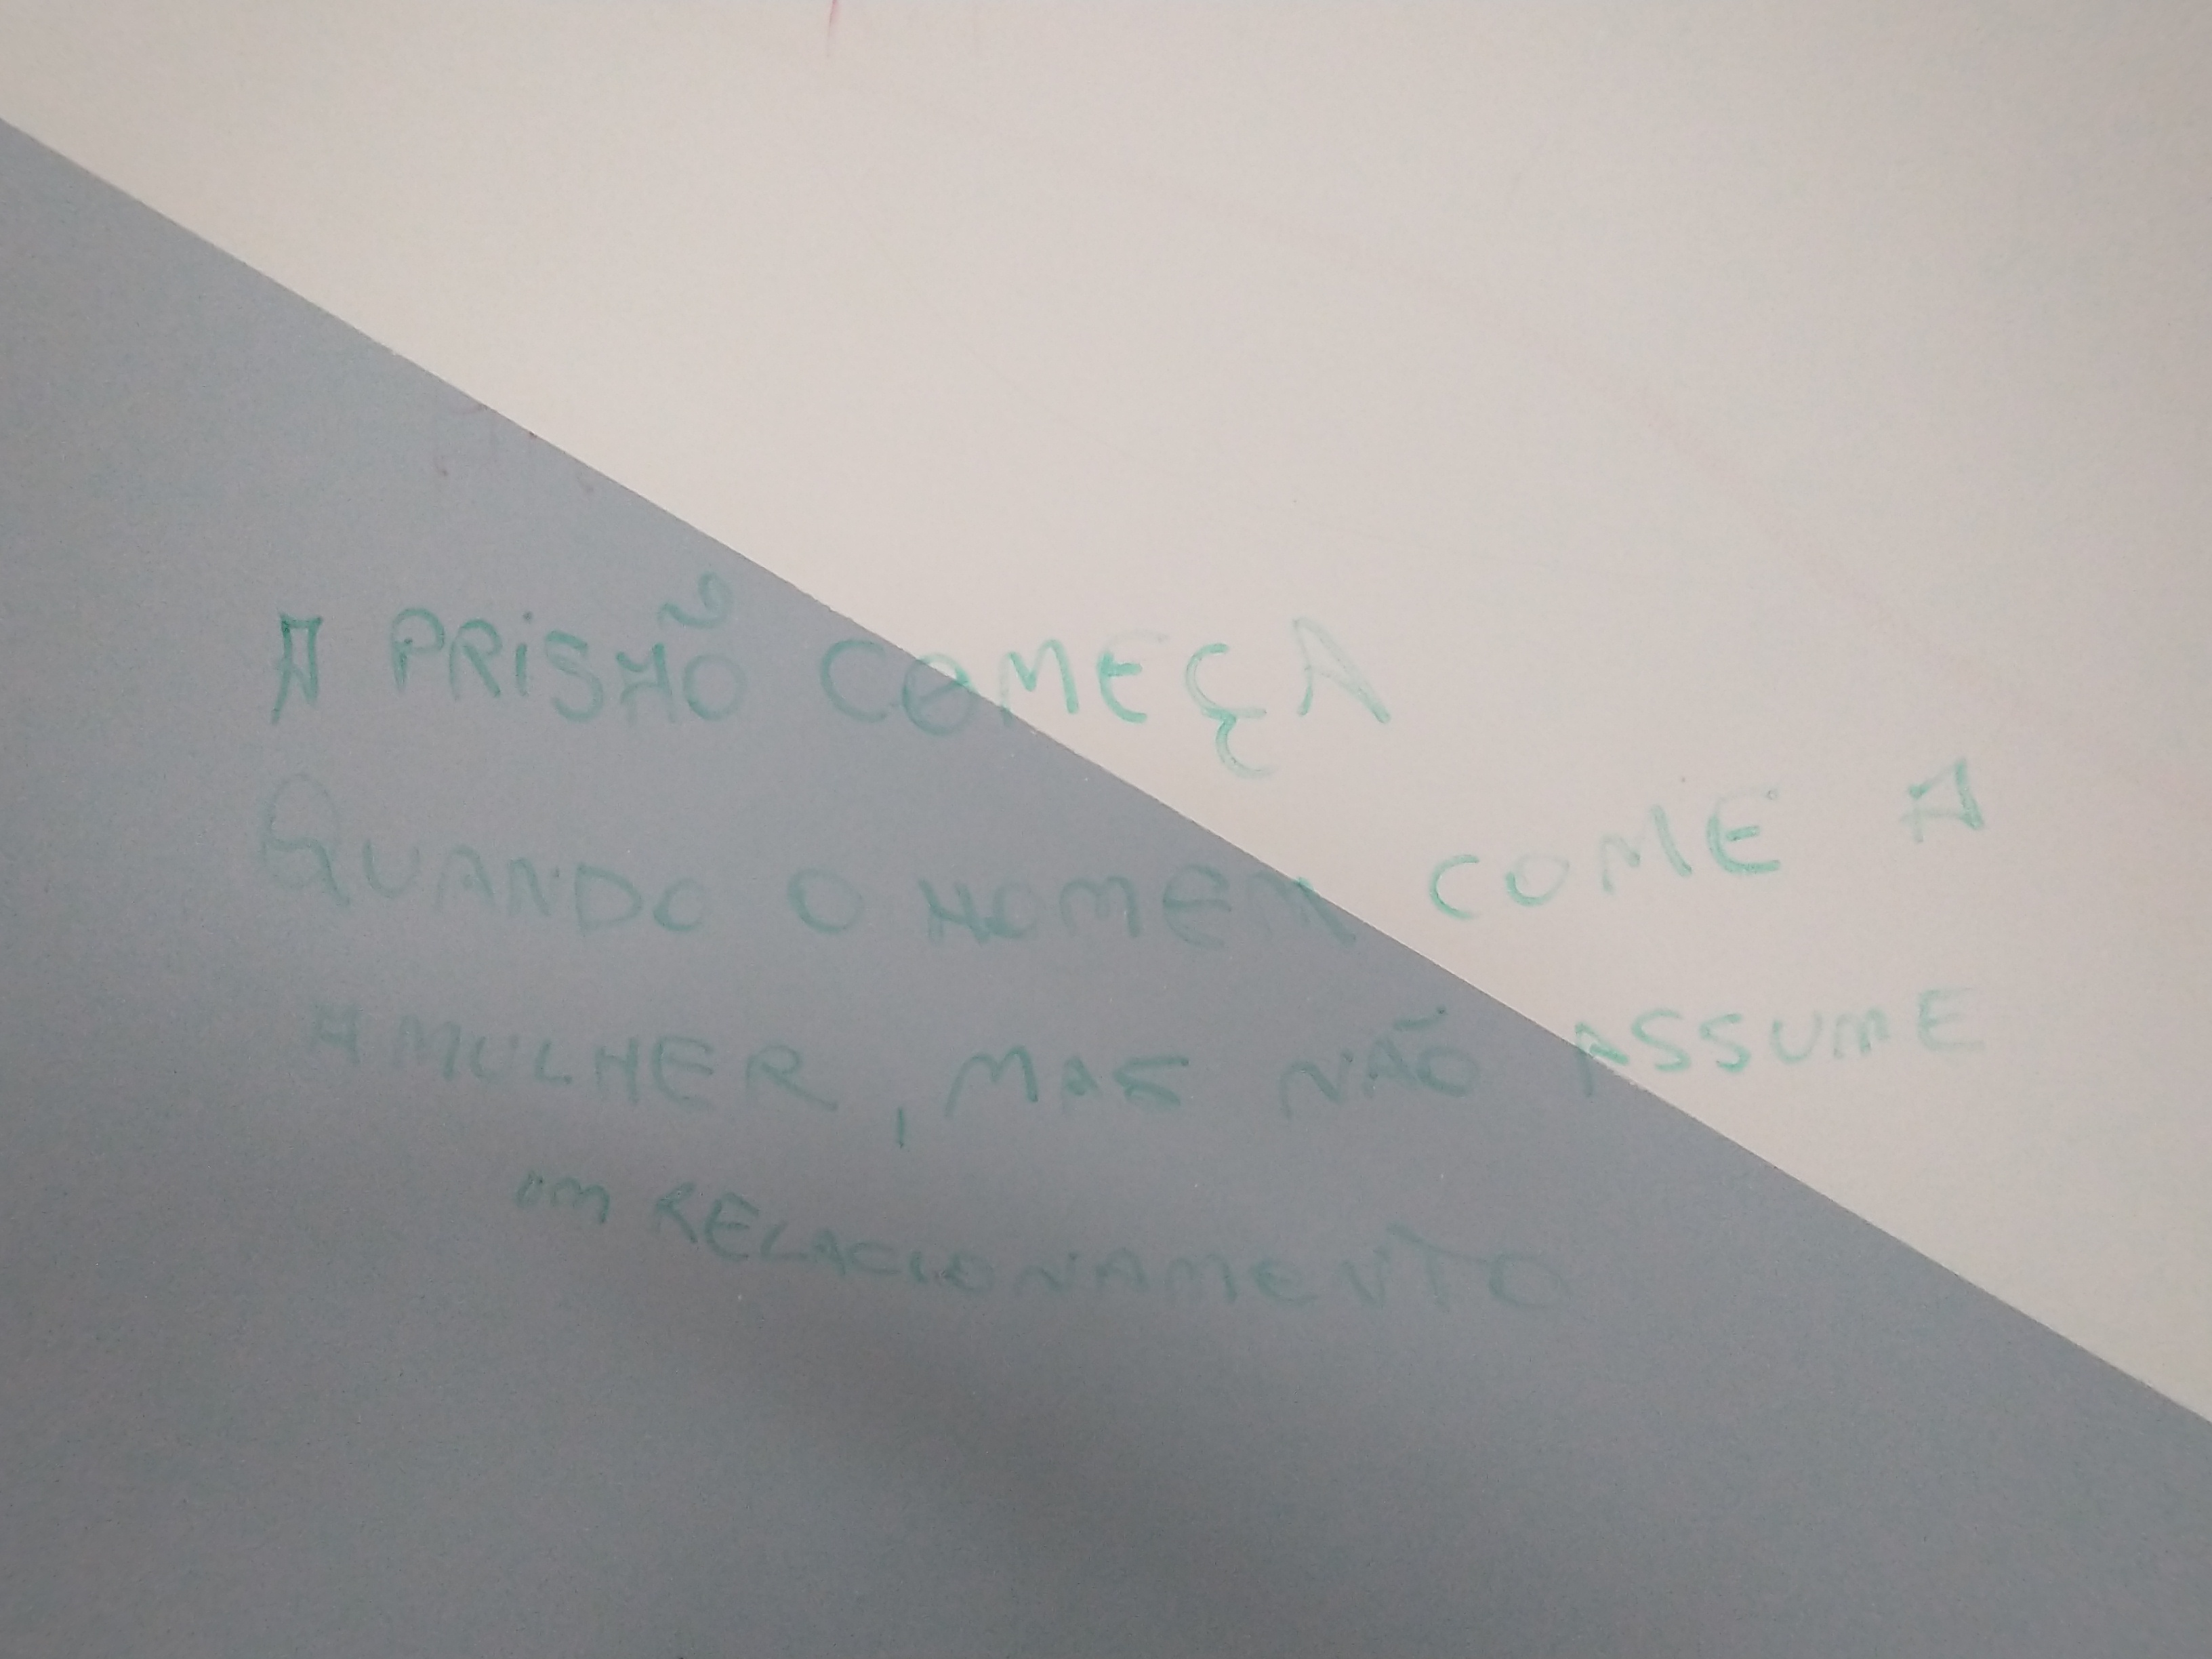 A PRISÃO COMEÇA
QUANDO O HOMEM COME A
A MULHER, MAS NÃO ASSUME
UM RELACIONAMENTO